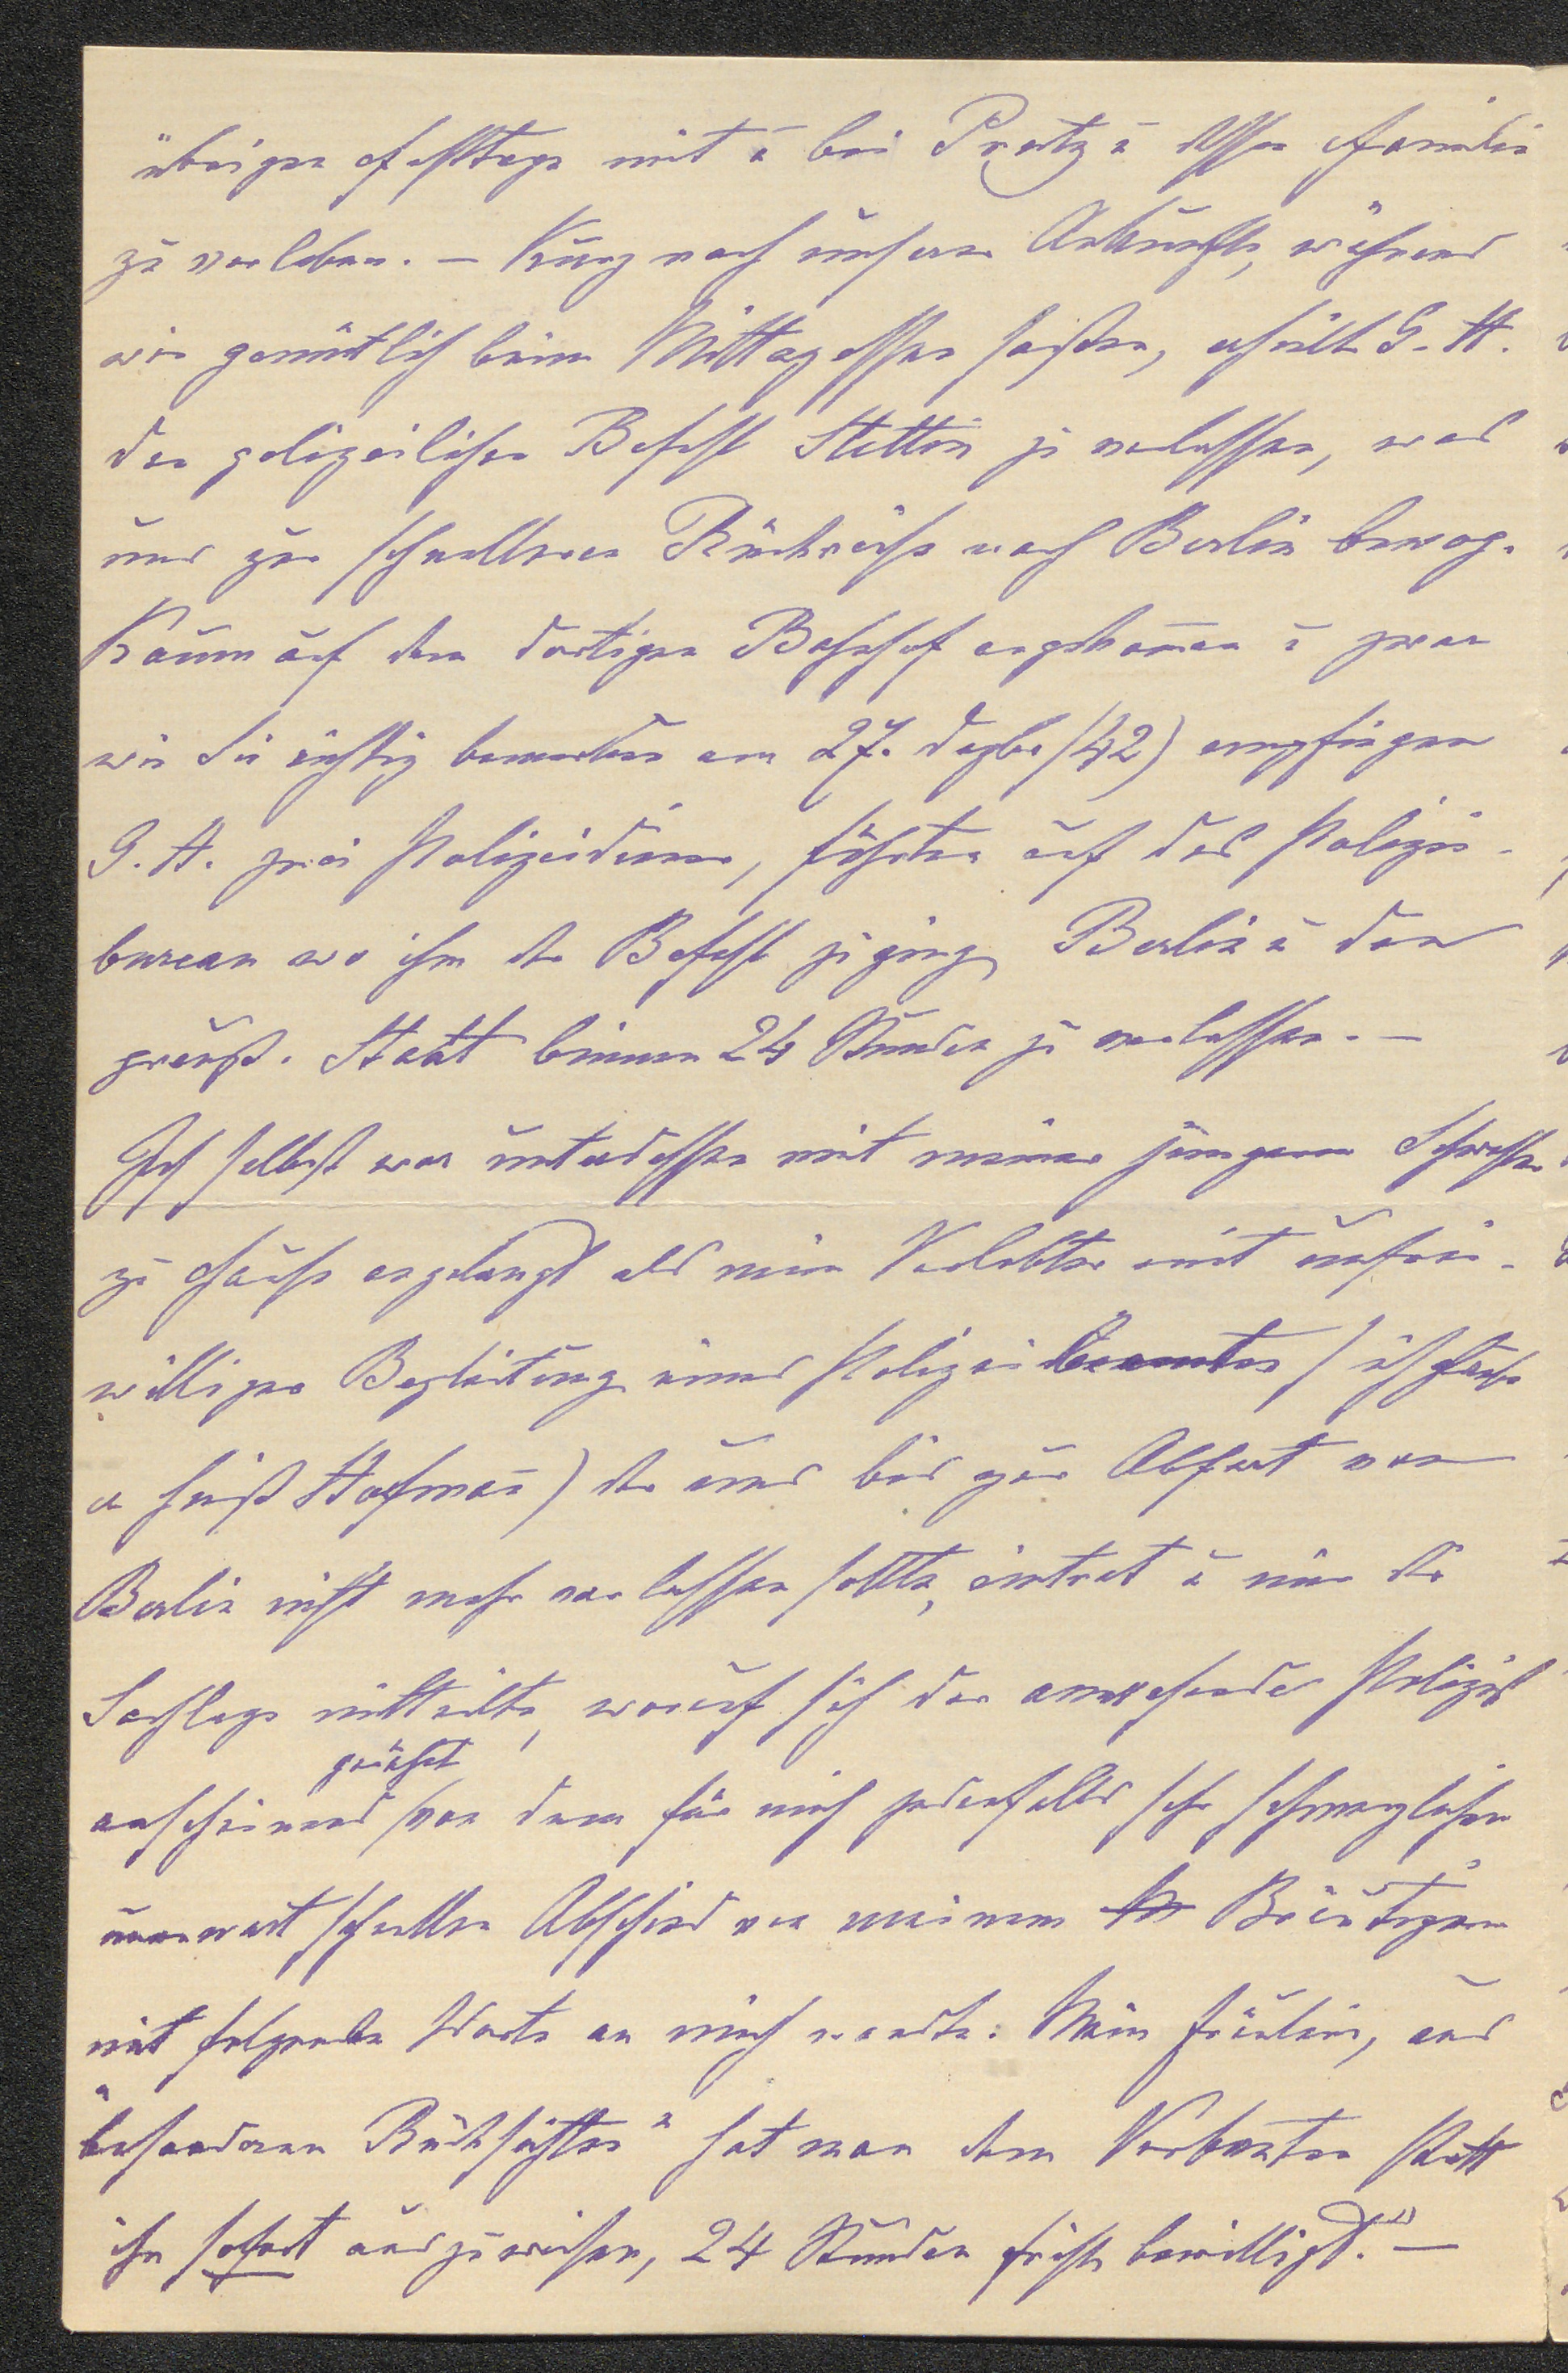 übrigen Festtage mit u bei Prutz u dessen Familie
zu verleben. – Kurz nach unserer Ankunft, während
wir gemütlich beim Mittagessen saßen, erhielt G. H.
den polizeilichen Befehl Stettin zu verlassen, was
uns zur schnelleren Rückreise nach Berlin bewog.
Kaum auf dem dortigen Bahnhof angekom̅en u zwar
wie Sie richtig bemerken am 27. Dezbr (42) empfingen
G. H. zwei Polizeidiener, führten auf das Polizei-
bureau wo ihm der Befehl zuging, Berlin u den
preuß. Staat binnen 24 Stunden zu verlassen. –
Ich selbst war unterdessen mit meiner jüngeren Schwester
zu Hause angelangt als mein Verlobter mit unfrei-
williger Begleitung eines Polizeibeamten (ich glaube
er hieß Hofman̅) der uns bis zur Abfart von
Berlin nicht mehr verlassen sollte, eintrat u mir die
Sachlage mitteilte, worauf sich der anwesende Polizist
gerührt
anscheinend von dem für mich jedenfalls sehr schmerzlichen
unerwart schnellen Abschied von meinem Bräutigam
mit folgenden Worte an mich wandte: Mein Fräulein, aus
"besonderen Rücksichten" hat man dem Verbanten statt
ihn sofort auszuweisen, 24 Stunden Frist bewilligt." –